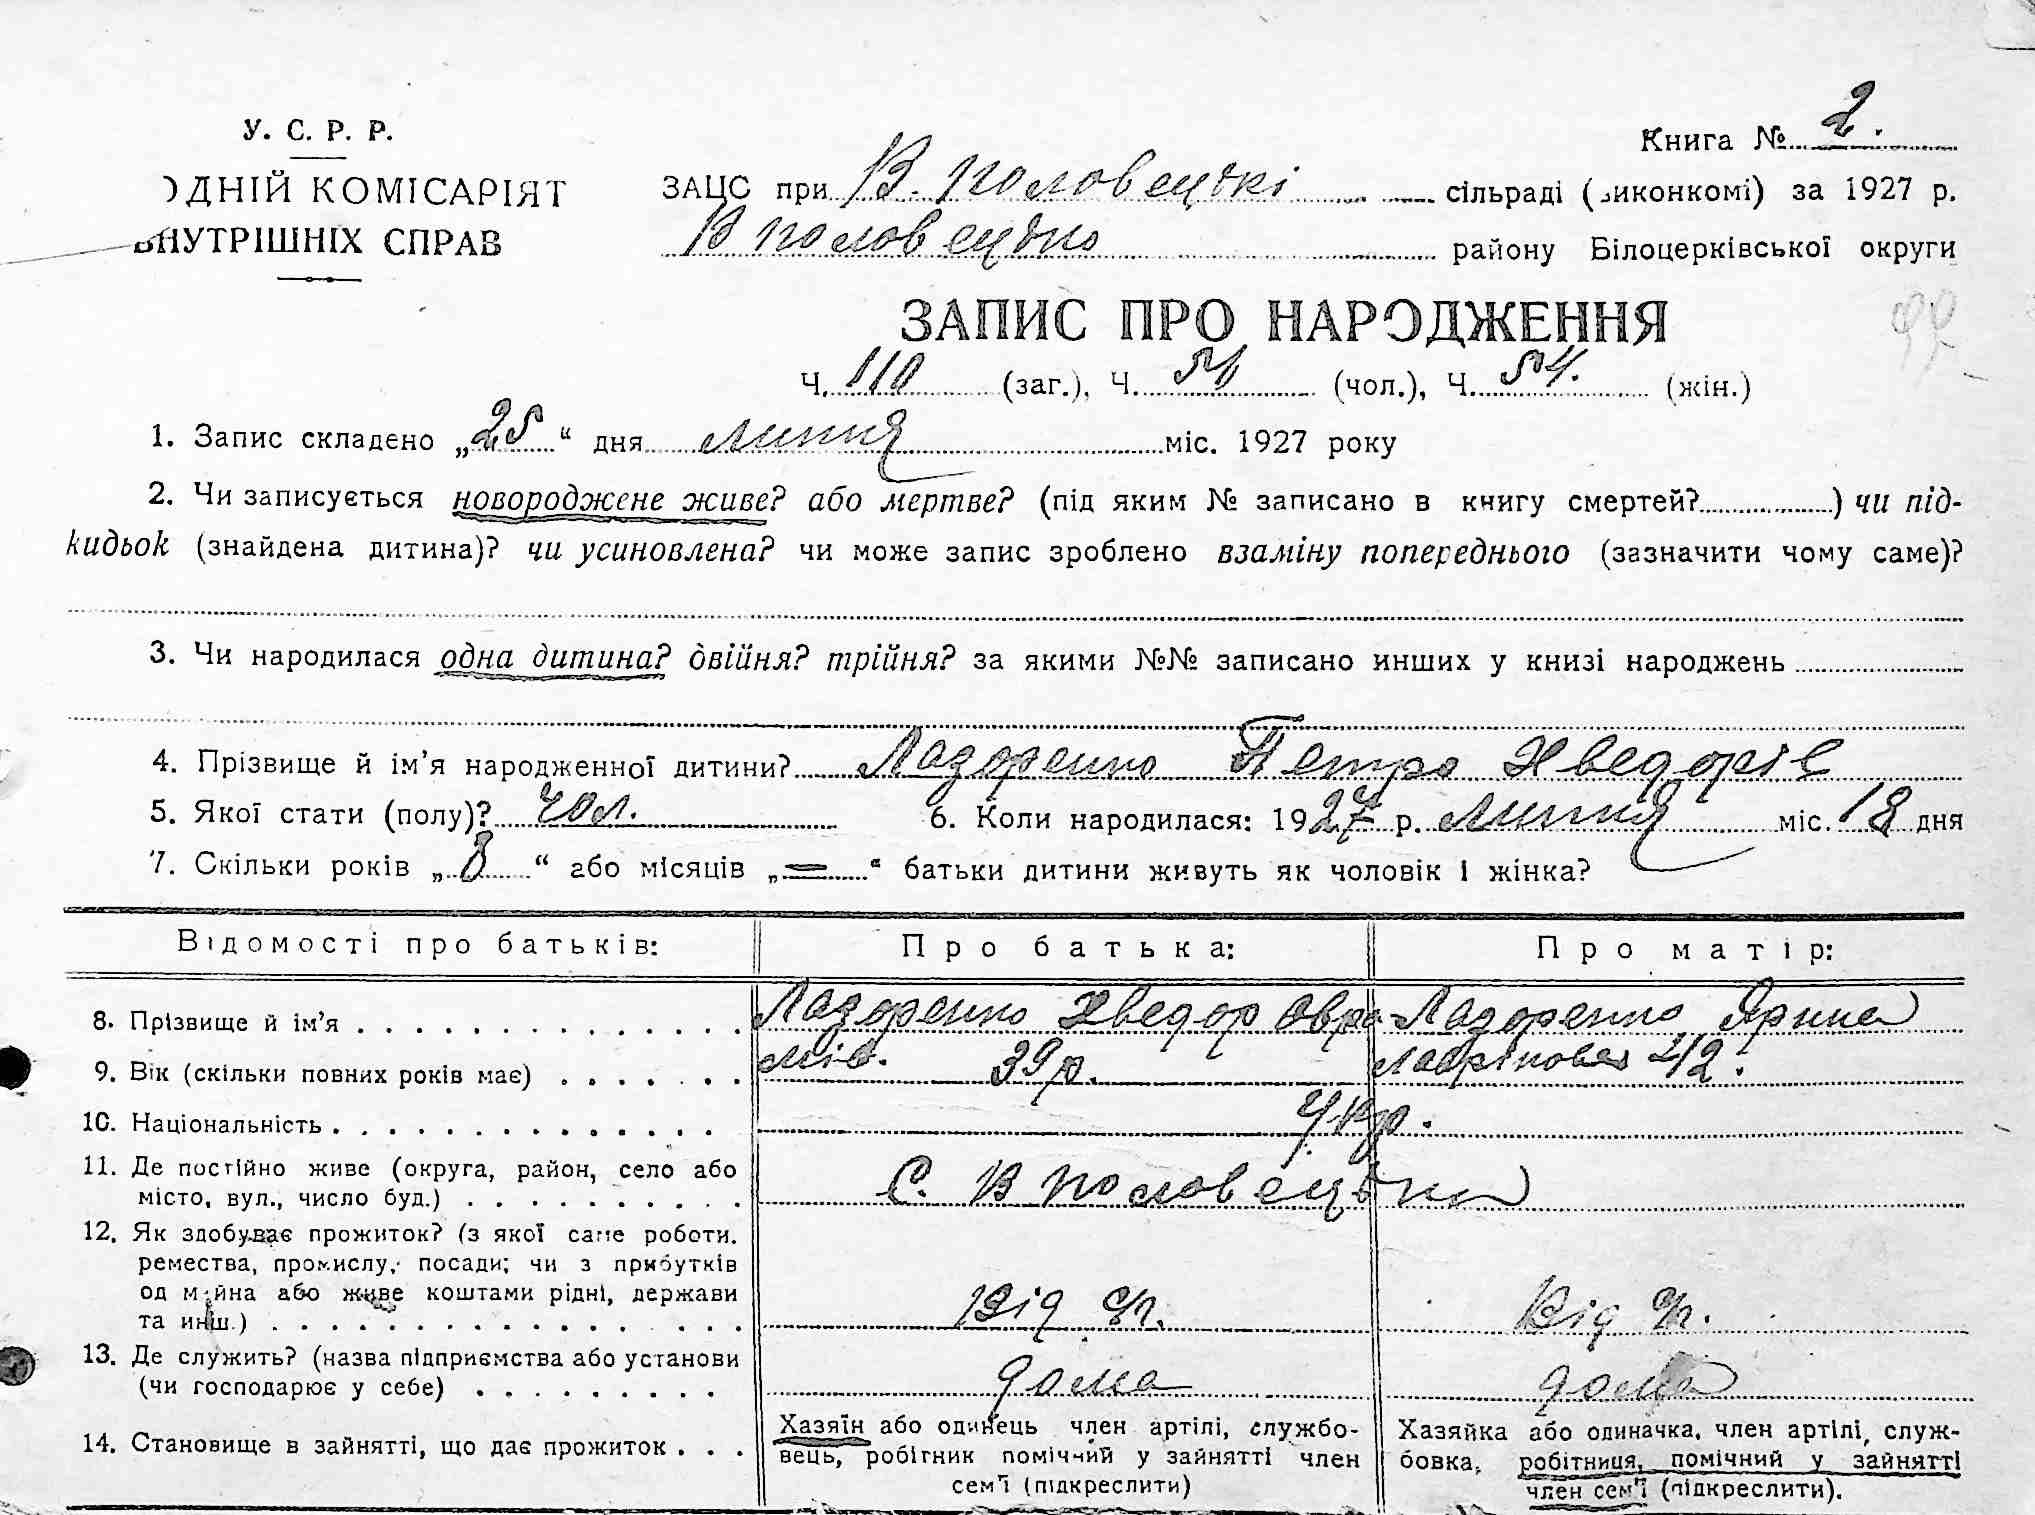 У. С. Р. Р.
ОДНІЙ КОМІСАРІЯТ
ВНУТРІШНІХ СПРАВ
Книга № 2.
ЗАЦС при В. Половецькі сільраді (виконкомі) за 1927 р.
В Половецько району Білоцерківської округи
ЗАПИС ПРО НАРОДЖЕННЯ
Ч. 110 (заг.), Ч. (чол.), Ч. 54. (жін.)
1. Запис складено „25“ дня липня міс. 1927 року
2. Чи записується новороджене живе? або мертве? (під яким № записано в книгу смертей?) чи під-
кидьок (знайдена дитина)? чи усиновлена? чи може запис зроблено взаміну попереднього (зазначити чому саме)?
3. Чи народилася одна дитина? двійня? трійня? за якими №№ записано инших у книзі народжень
4. Прізвище й ім’я народженної дитини? Лазоренко Петро Хведорів
5. Якої стати (полу)? чол. 6. Коли народилася: 1927 р. липня міс. 18 дня
7. Скільки років „8“ або місяців „=“ батьки дитини живуть як чоловік і жінка?
Відомості про батьків: Про батька: Про матір:
8. Прізвище й ім’я Лазоренко Хведор Овра- Лазоренко Ярина
9. Вік (скільки повних років має) мів. 39 р. Лаврінова 42.
10. Національність Укр.
11. Де постійно живе (округа, район, село або
місто, вул., число буд.) С. В Половецька
12. Як здобуває прожиток? (з якої саме роботи,
ремества, промислу, посади; чи з прибутків
од майна або живе коштами рідні, держави
та инш.) Від с/г. Від с/г.
13. Де служить? (назва підприємства або установи
(чи господарює у себе) дома дома
14. Становище в зайнятті, що дає прожиток
Хазяїн або одинець член артілі, службо-
вець, робітник помічний у зайнятті член
сем’ї (підкреслити)
Хазяйка або одиначка, член артілі, служ-
бовка, робітниця, помічний у зайнятті
член сем’ї (підкреслити).